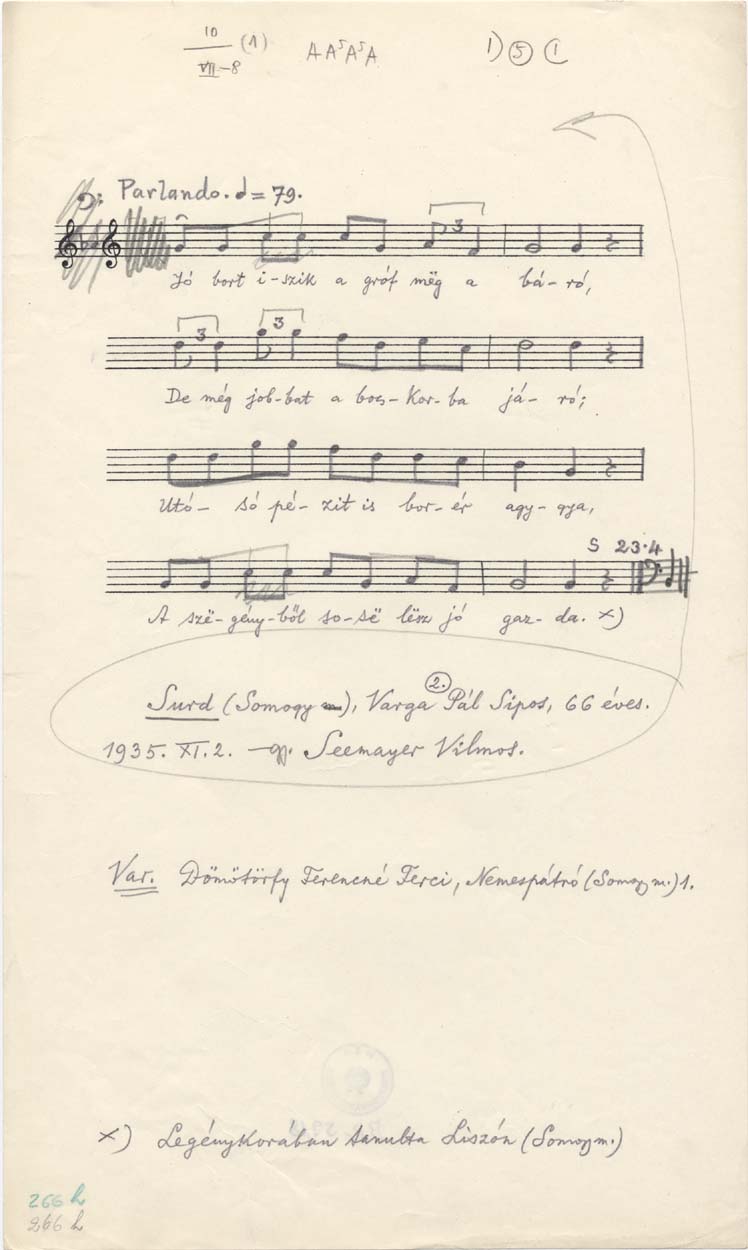 10
VII-8 (1) AA⁵A⁵A 1) 5 (1
Parlando. = 79.
3
Jó bort i-szik a gróf mëg a bá-ró,
3 3
De még job-bat a bocs-kor-ba já-ró;
Utó- só pé- zit is bor- ér agy- gya,
S 23.4
A szë-gény-ből so-së lësz jó gaz-da. x)
Surd (Somogy m), Varga 2. Pál Sipos, 66 éves.
1935. XI. 2. gy. Seemayer Vilmos.
Var. Dömötörfy Ferencné Ferci, Nemespátró (Somogy m.) 1.
x) Legénykorában tanulta Liszón (Somogy m.)
266 h
266 h